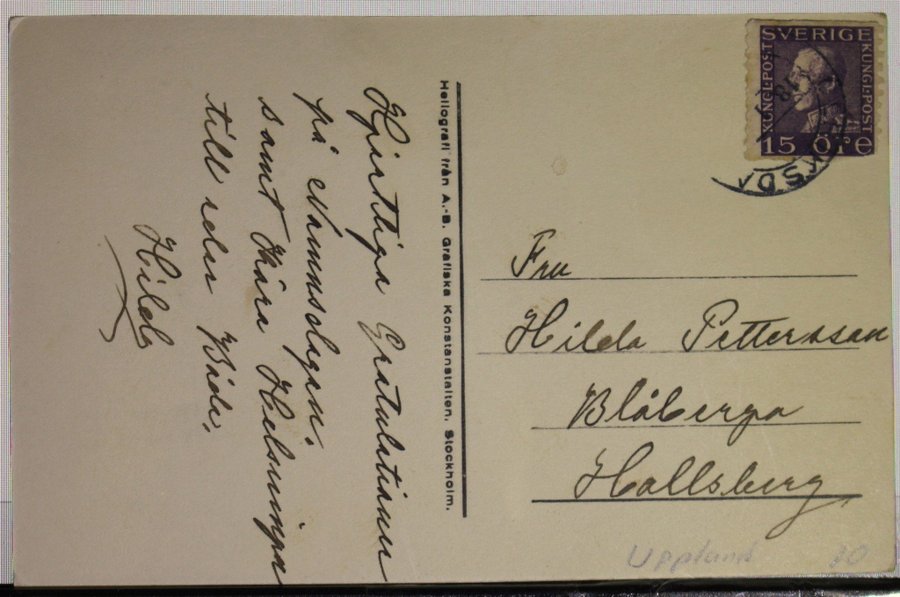 Hjärtliga Gratulationer
på Namnsdagen.
samt Kära Helsninga
till eder Båda,
Hilda
Heliografi från A.-B. Grafiska Konstanstalten, Stockholm.
SVERIGE
KUNGL·POST
KUNGL·POST
15 ÖRE
Fru
Hilda Pettersson
Blåberga
Hallsberg
Uppland 20